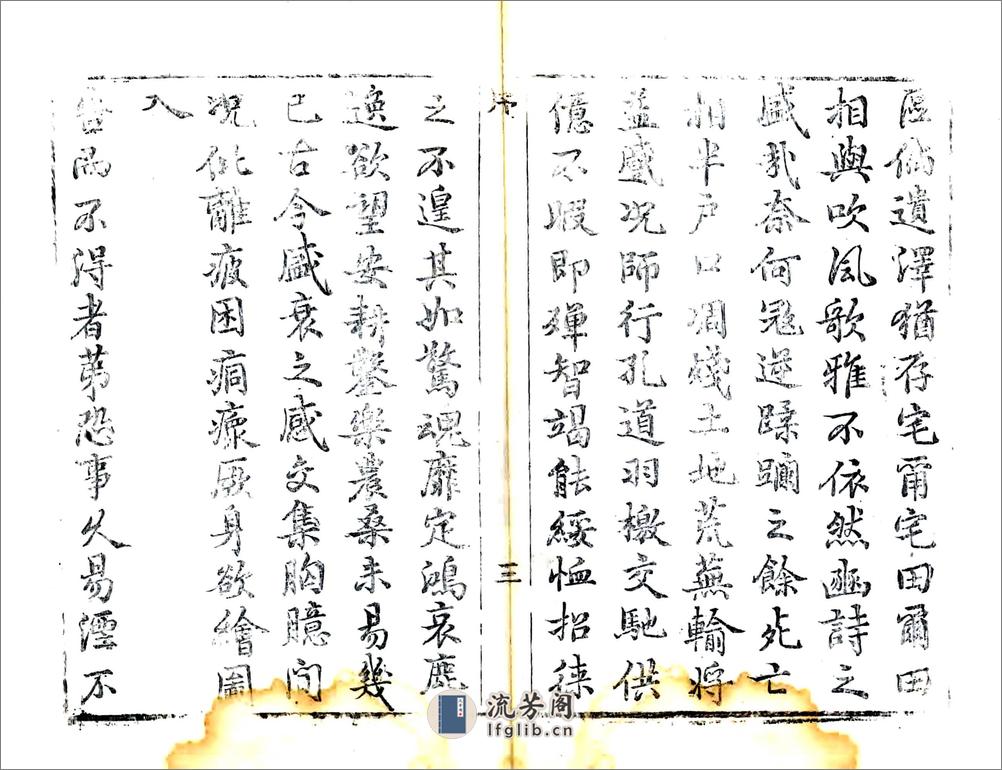 區偹遺澤猶存宅爾宅田爾田
相與吹風歌雅不依然豳詩之
盛哉奈何冦逆蹂躪之餘死亡
相半戶口凋殘土地荒蕪輸將
盖感况師行孔道羽檄交馳供
億不暇即殫智竭能綏恤招徠
序
三
之不遑其如驚魂靡定鴻哀鹿
逸欲望安耕鑿樂農桑未易幾
已古今盛衰之感交集胸臆间
况仳離疲困痌瘝厥身欲繪圖
入
告而不得者第恐事久易湮不
流芳阁
lfglib.cn